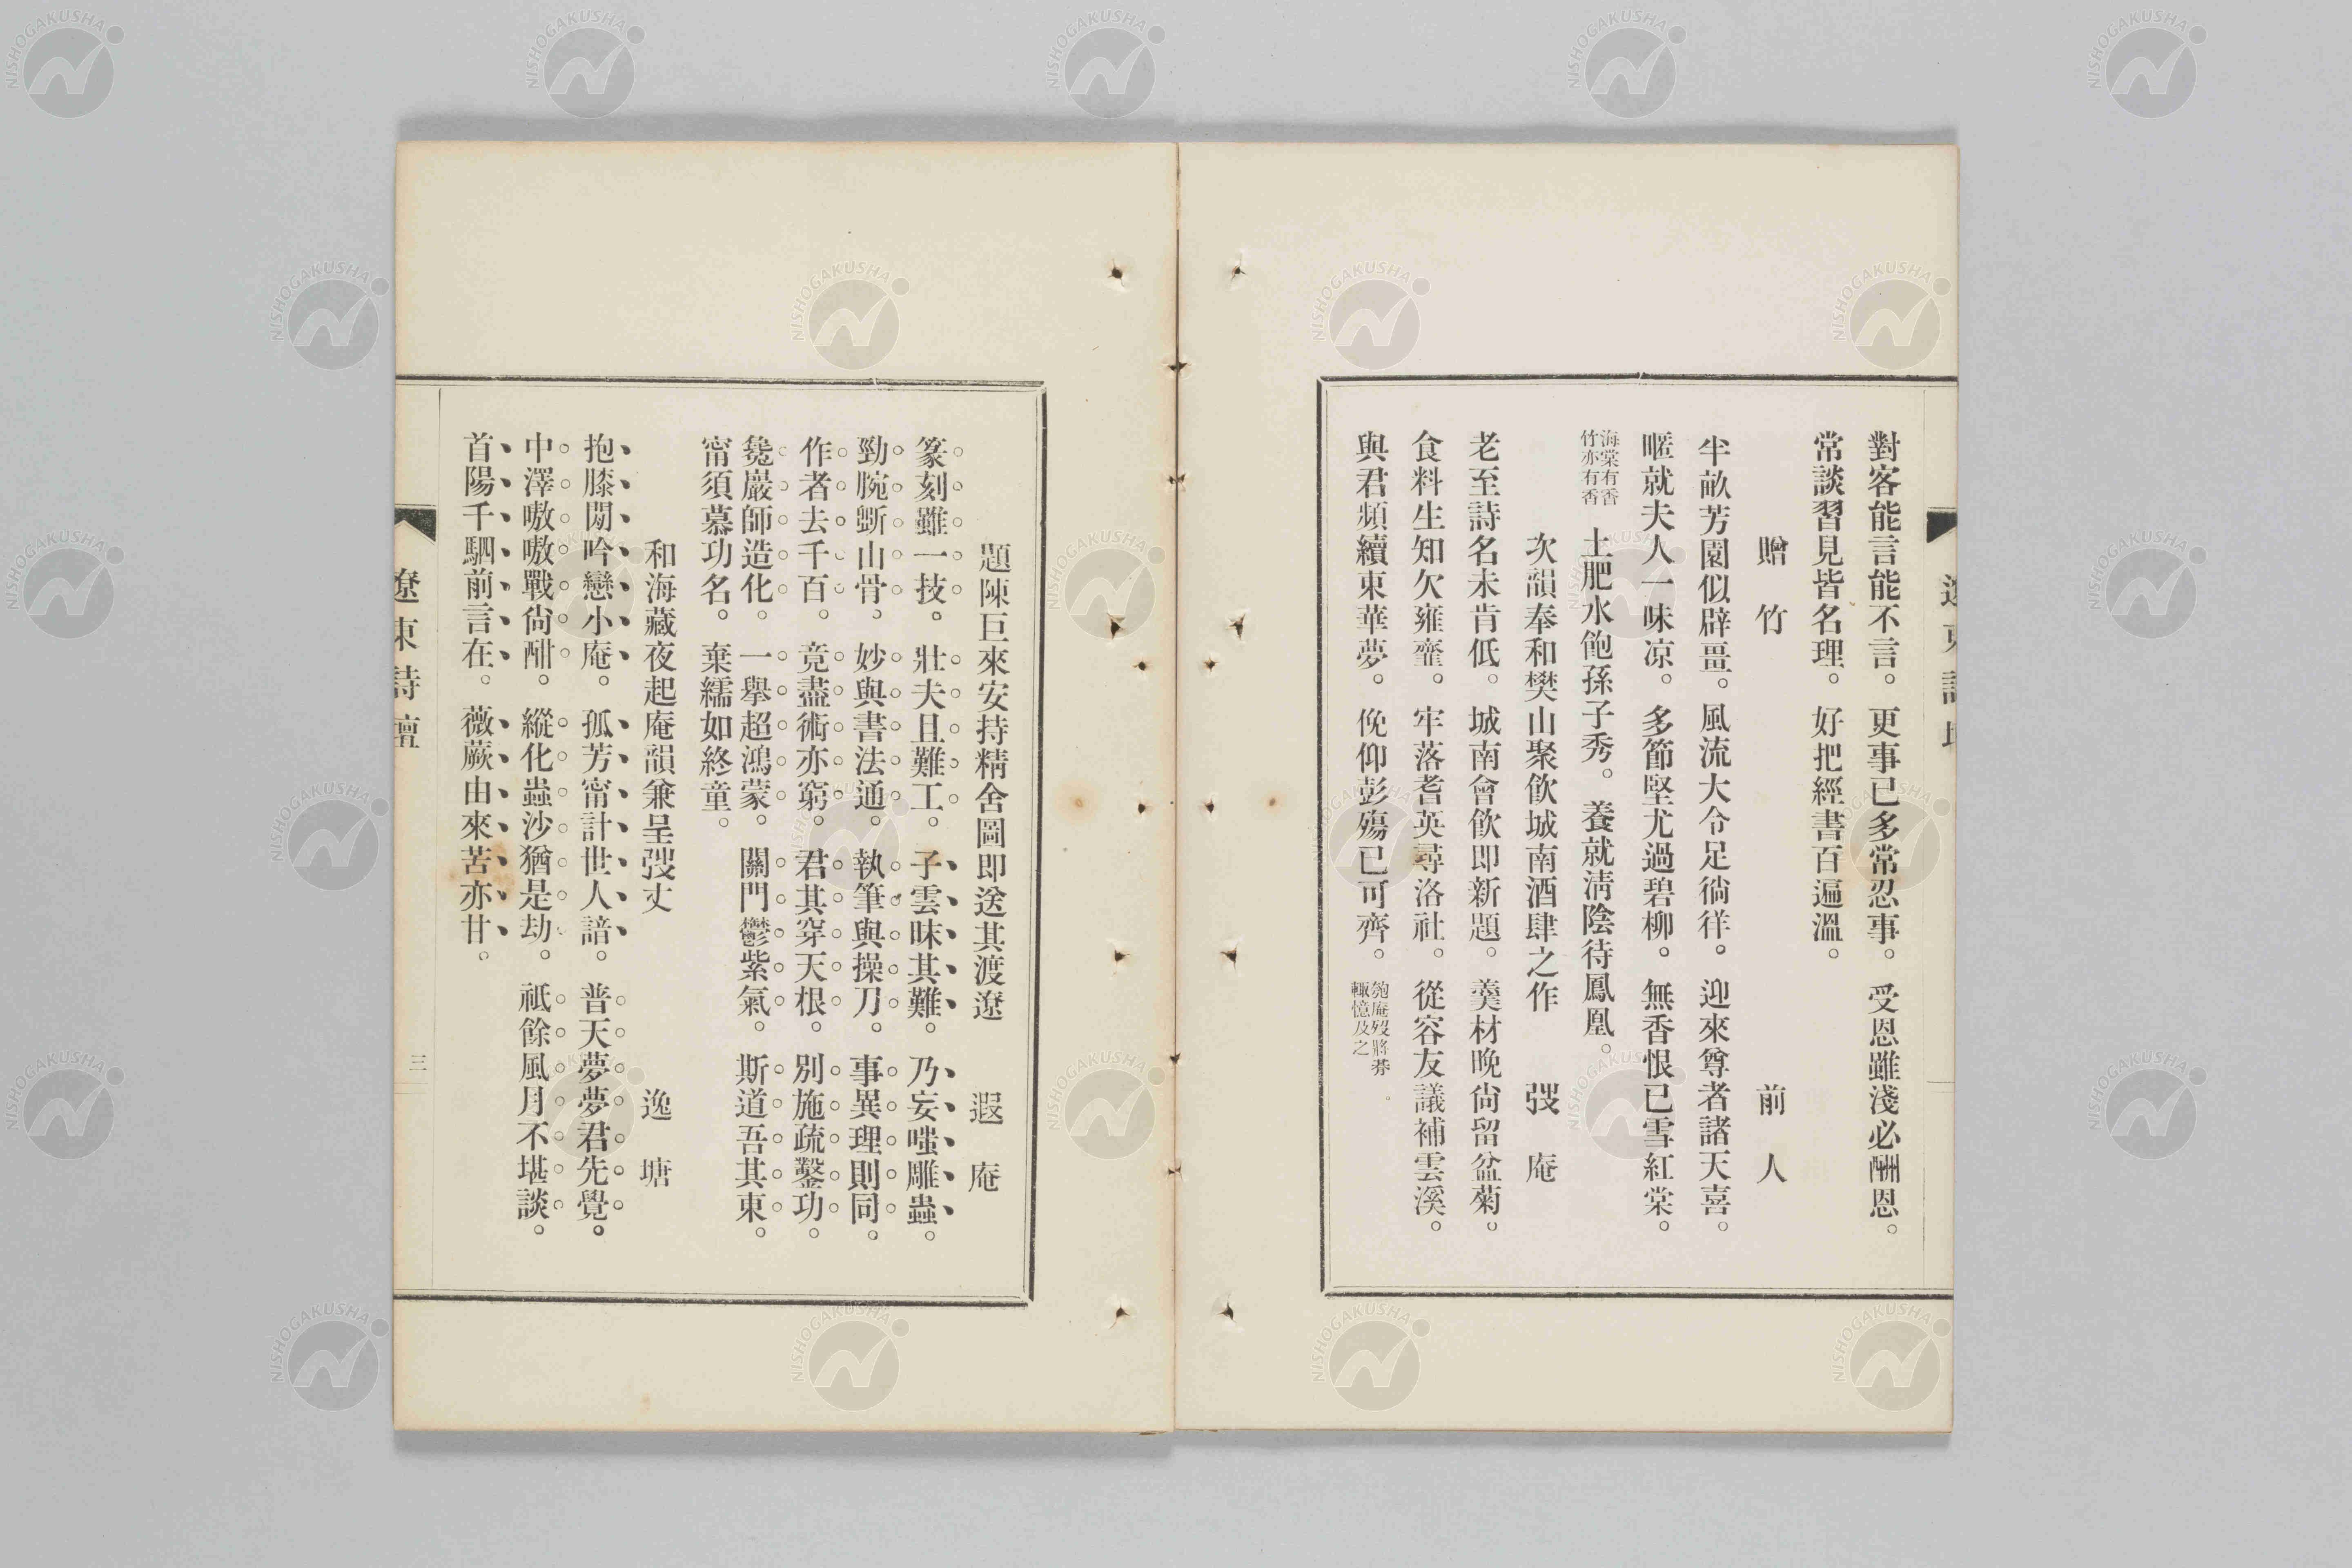 對客能言能不言。更事已多常忍事。受恩雖淺必酬恩。
常談習見皆名理。好把經書百遍溫。
贈竹 前人
半畝芳園似辟畺。風流大令足徜徉。迎來尊者諸天喜。
暱就夫人一味凉。多節堅尤過碧柳。無香恨已雪紅棠。
海棠有香
竹亦有香
土肥水飽孫子秀。養就淸陰待鳳凰。
次韻奉和樊山聚飮城南酒肆之作 弢庵
老至詩名未肯低。城南會飮卽新題。羹材晚尙留盆菊。
食料生知欠雍虀。牢落耆英尋洛社。從容友議補雲溪。
與君頻續東華夢。俛仰彭殤已可齊。
匏庵歿將朞
輒憶及之
題陳巨來安持精舍圖卽送其渡遼 遐庵
篆刻雖一技。壯夫且難工。子雲昧其難。乃妄嗤雕蟲。
勁腕斲山骨。妙與書法通。執筆與操刀。事異理則同。
作者去千百。竞盡術亦窮。君其穿天根。別施疏鑿功。
毚巖師造化。一舉超鴻蒙。關門鬱紫氣。斯道吾其東。
甯須慕功名。棄繻如終童。
和海藏夜起庵韻兼呈弢丈 逸塘
抱膝閒吟戀小庵。孤芳甯計世人諳。普天夢夢君先覺。
中澤嗷嗷戰尙酣。縱化蟲沙猶是劫。祗餘風月不堪談。
首陽千駟前言在。薇蕨由來苦亦甘。
遼東詩壇
三